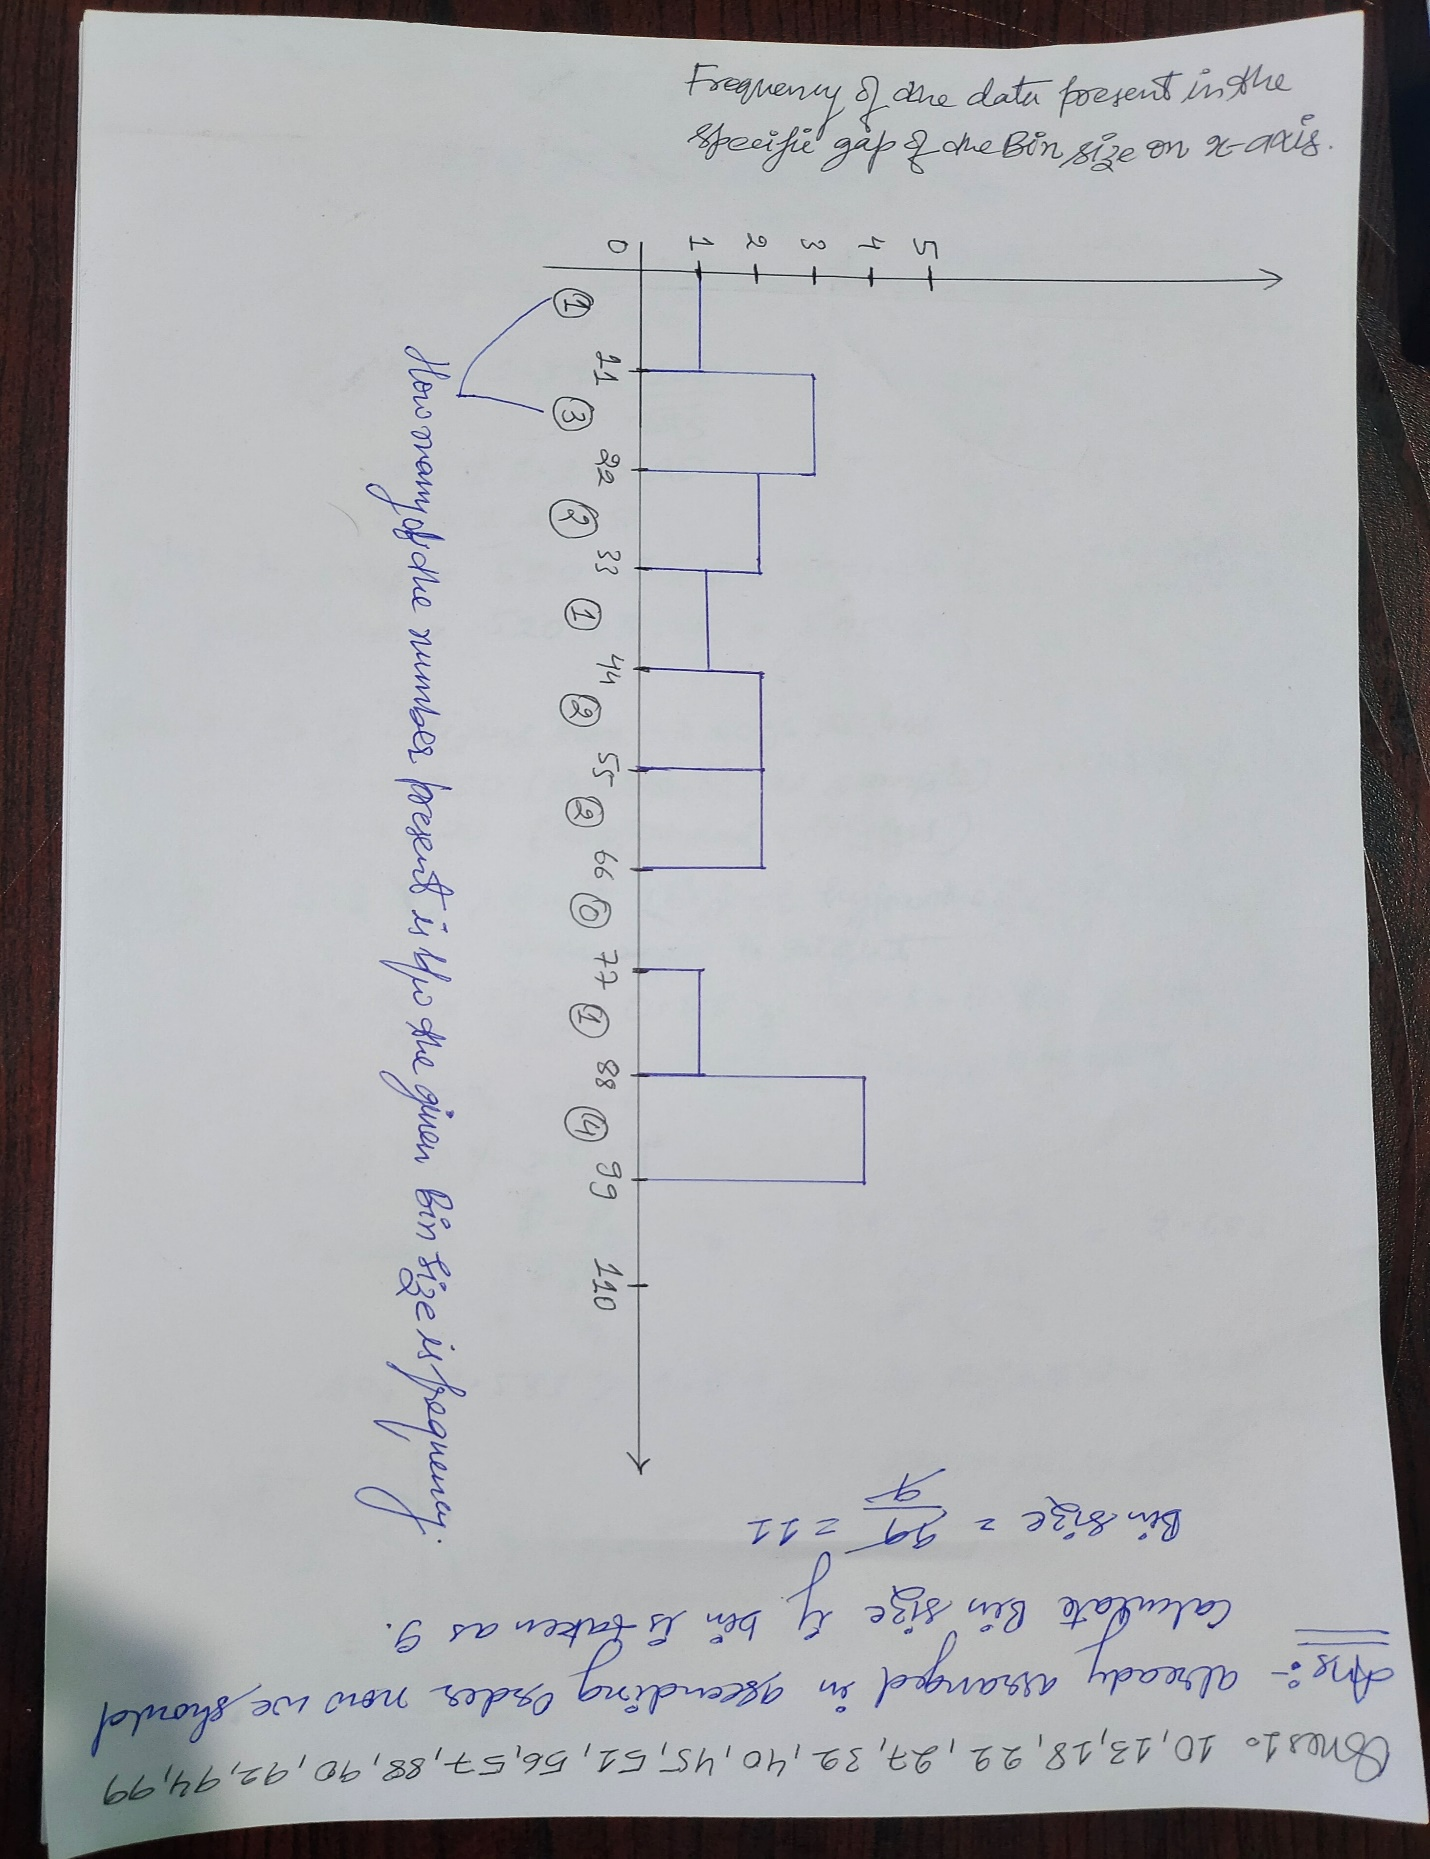 Ques1. 10, 13, 18, 22, 27, 32, 40, 45, 51, 56, 57, 88, 90, 92, 94, 99
Ans:- already arranged in ascending order now we should
calculate Bin size if bin is taken as 9.
Bin size = 99/9 = 11
Frequency of the data present in the
specific gap of the Bin size on x-axis.
5
4
3
2
1
0
11 22 33 44 55 66 77 88 99 110
1 3 2 1 2 2 0 1 4
How many of the number present is the given Bin size is frequency.